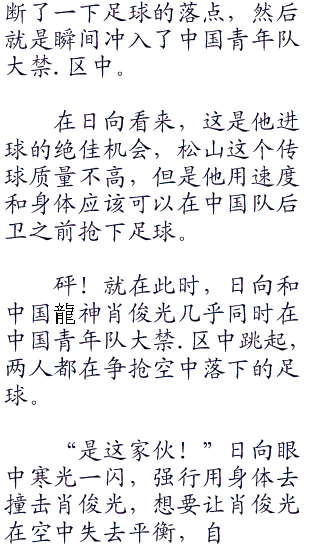 断了一下足球的落点，然后
就是瞬间冲入了中国青年队
大禁.区中。
在日向看来，这是他进
球的绝佳机会，松山这个传
球质量不高，但是他用速度
和身体应该可以在中国队后
卫之前抢下足球。
砰！就在此时，日向和
中国龍神肖俊光几乎同时在
中国青年队大禁.区中跳起，
两人都在争抢空中落下的足
球。
“是这家伙！”日向眼
中寒光一闪，强行用身体去
撞击肖俊光，想要让肖俊光
在空中失去平衡，自